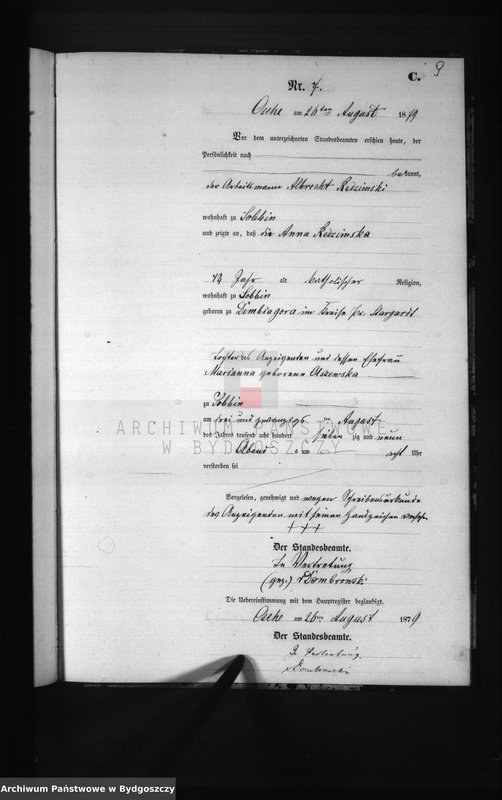 C.
9
Nr. 7.
Osche am 26ten August 1879
Vor dem unterzeichneten Standesbeamten erschien heute, der
Persönlichkeit nach
bekannt,
der Arbeitsmann Albrecht Redzimski
wohnhaft zu Sobbin
und zeigte an, daß die Anna Redzimska
13 Jahr alt katholischer Religion,
wohnhaft zu Sobbin
geboren zu Dembiagora im Kreise Pr: Stargardt
Tochter des Anzeigenden und dessen Ehefrau
Marianna geborene
zu Sobbin
am drei und zwanzigs ten August
des Jahres tausend acht hundert sieben zig und neun
Abend s um acht Uhr
verstorben sei
Vorgelesen, genehmigt und wegen Schreibensunkunde
des Anzeigenden mit seinen Handzeichen versehen
+++
Der Standesbeamte.
In Vertretung
(gez.) v Dombrowski
Die Uebereinstimmung mit dem Hauptregister beglaubigt.
Osche am 26ten August 1879
Der Standesbeamte.
In Vertretung.
v Dombrowski
ARCHIWUM PAŃSTWOWE
W BYDGOSZCZY
Archiwum Państwowe w Bydgoszczy